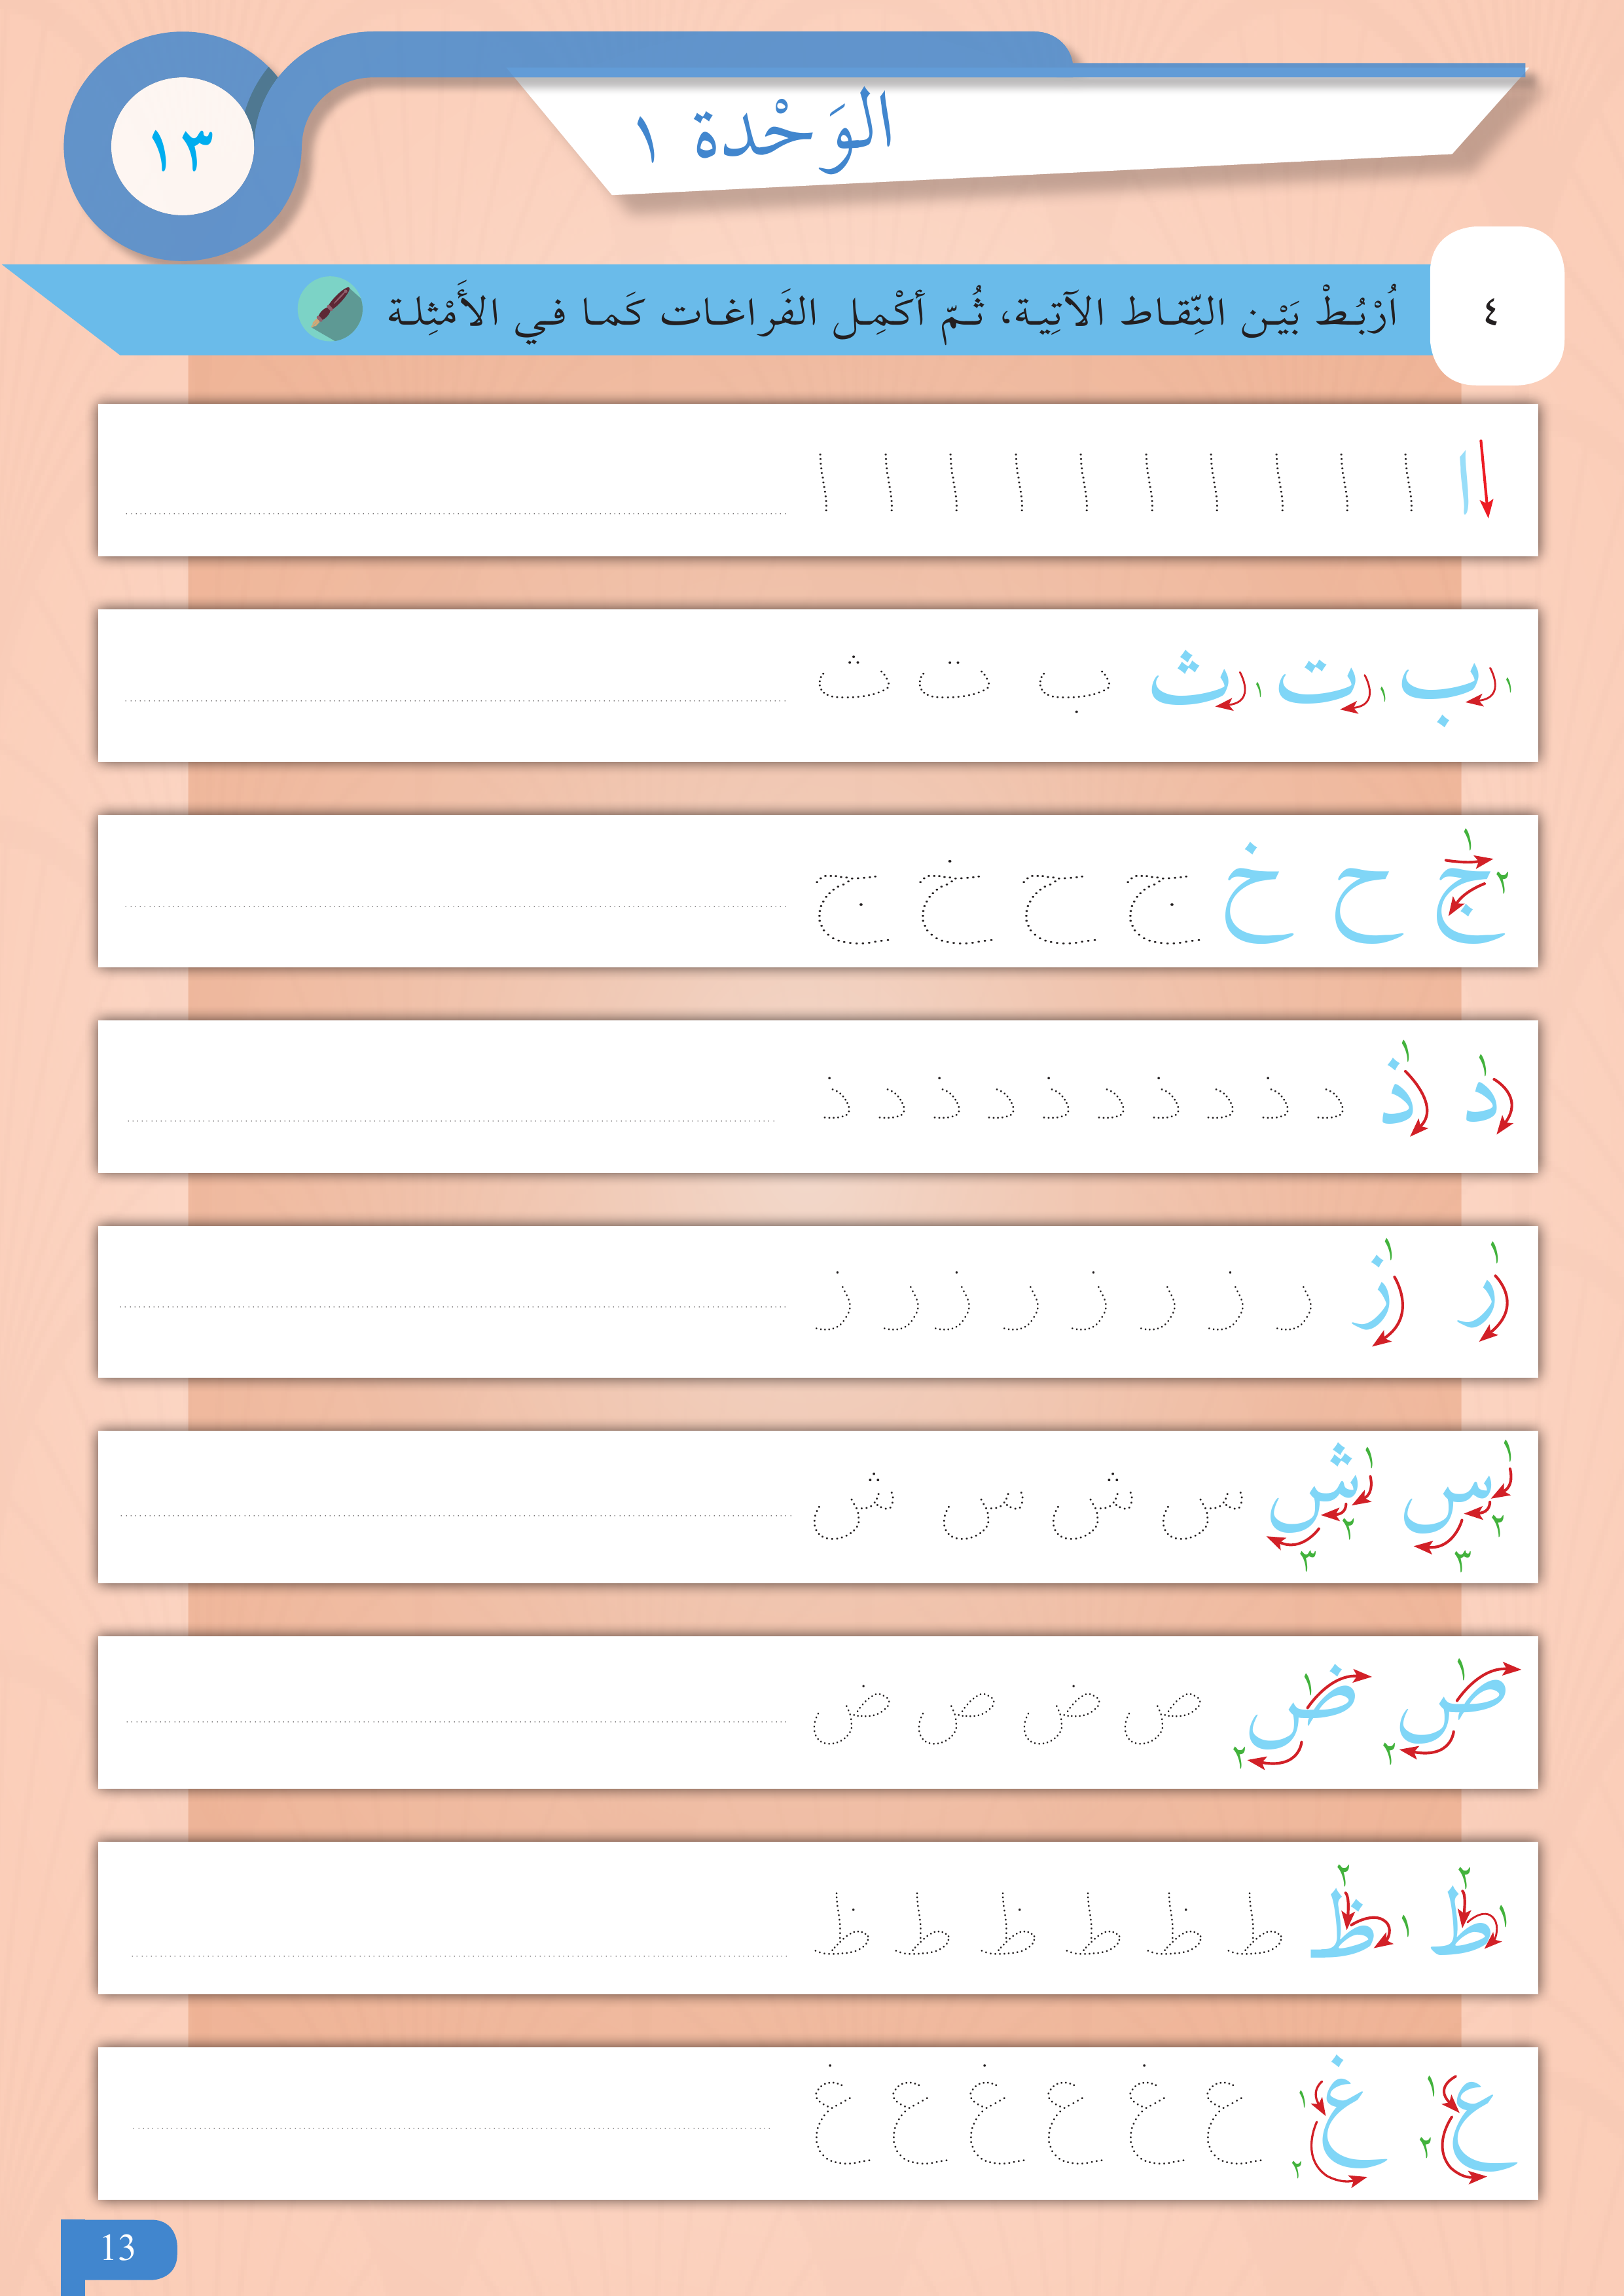 ١٣
الوَحْدة ١
٤ اُرْبُطْ بَيْن النِّقاط الآتِية، ثُمّ أكْمِل الفَراغات كَما في الأَمْثِلة
ا ا ا ا ا ا ا ا ا ا ا
١ ب ١ ت ١ ث ب ت ث
١ ٢ ج ح خ ج ح خ ج
١ د ١ ذ د ذ د ذ د ذ د ذ د ذ
١ ر ١ ز ر ز ر ز ر ز ر ز
١ ٢ ٣ س ١ ٢ ٣ ش س ش س ش
١ ٢ ص ١ ٢ ض ص ض ص ض
١ ٢ ط ١ ٢ ظ ط ظ ط ظ ط ظ
١ ٢ ع ١ ٢ غ ع غ ع غ ع غ
13